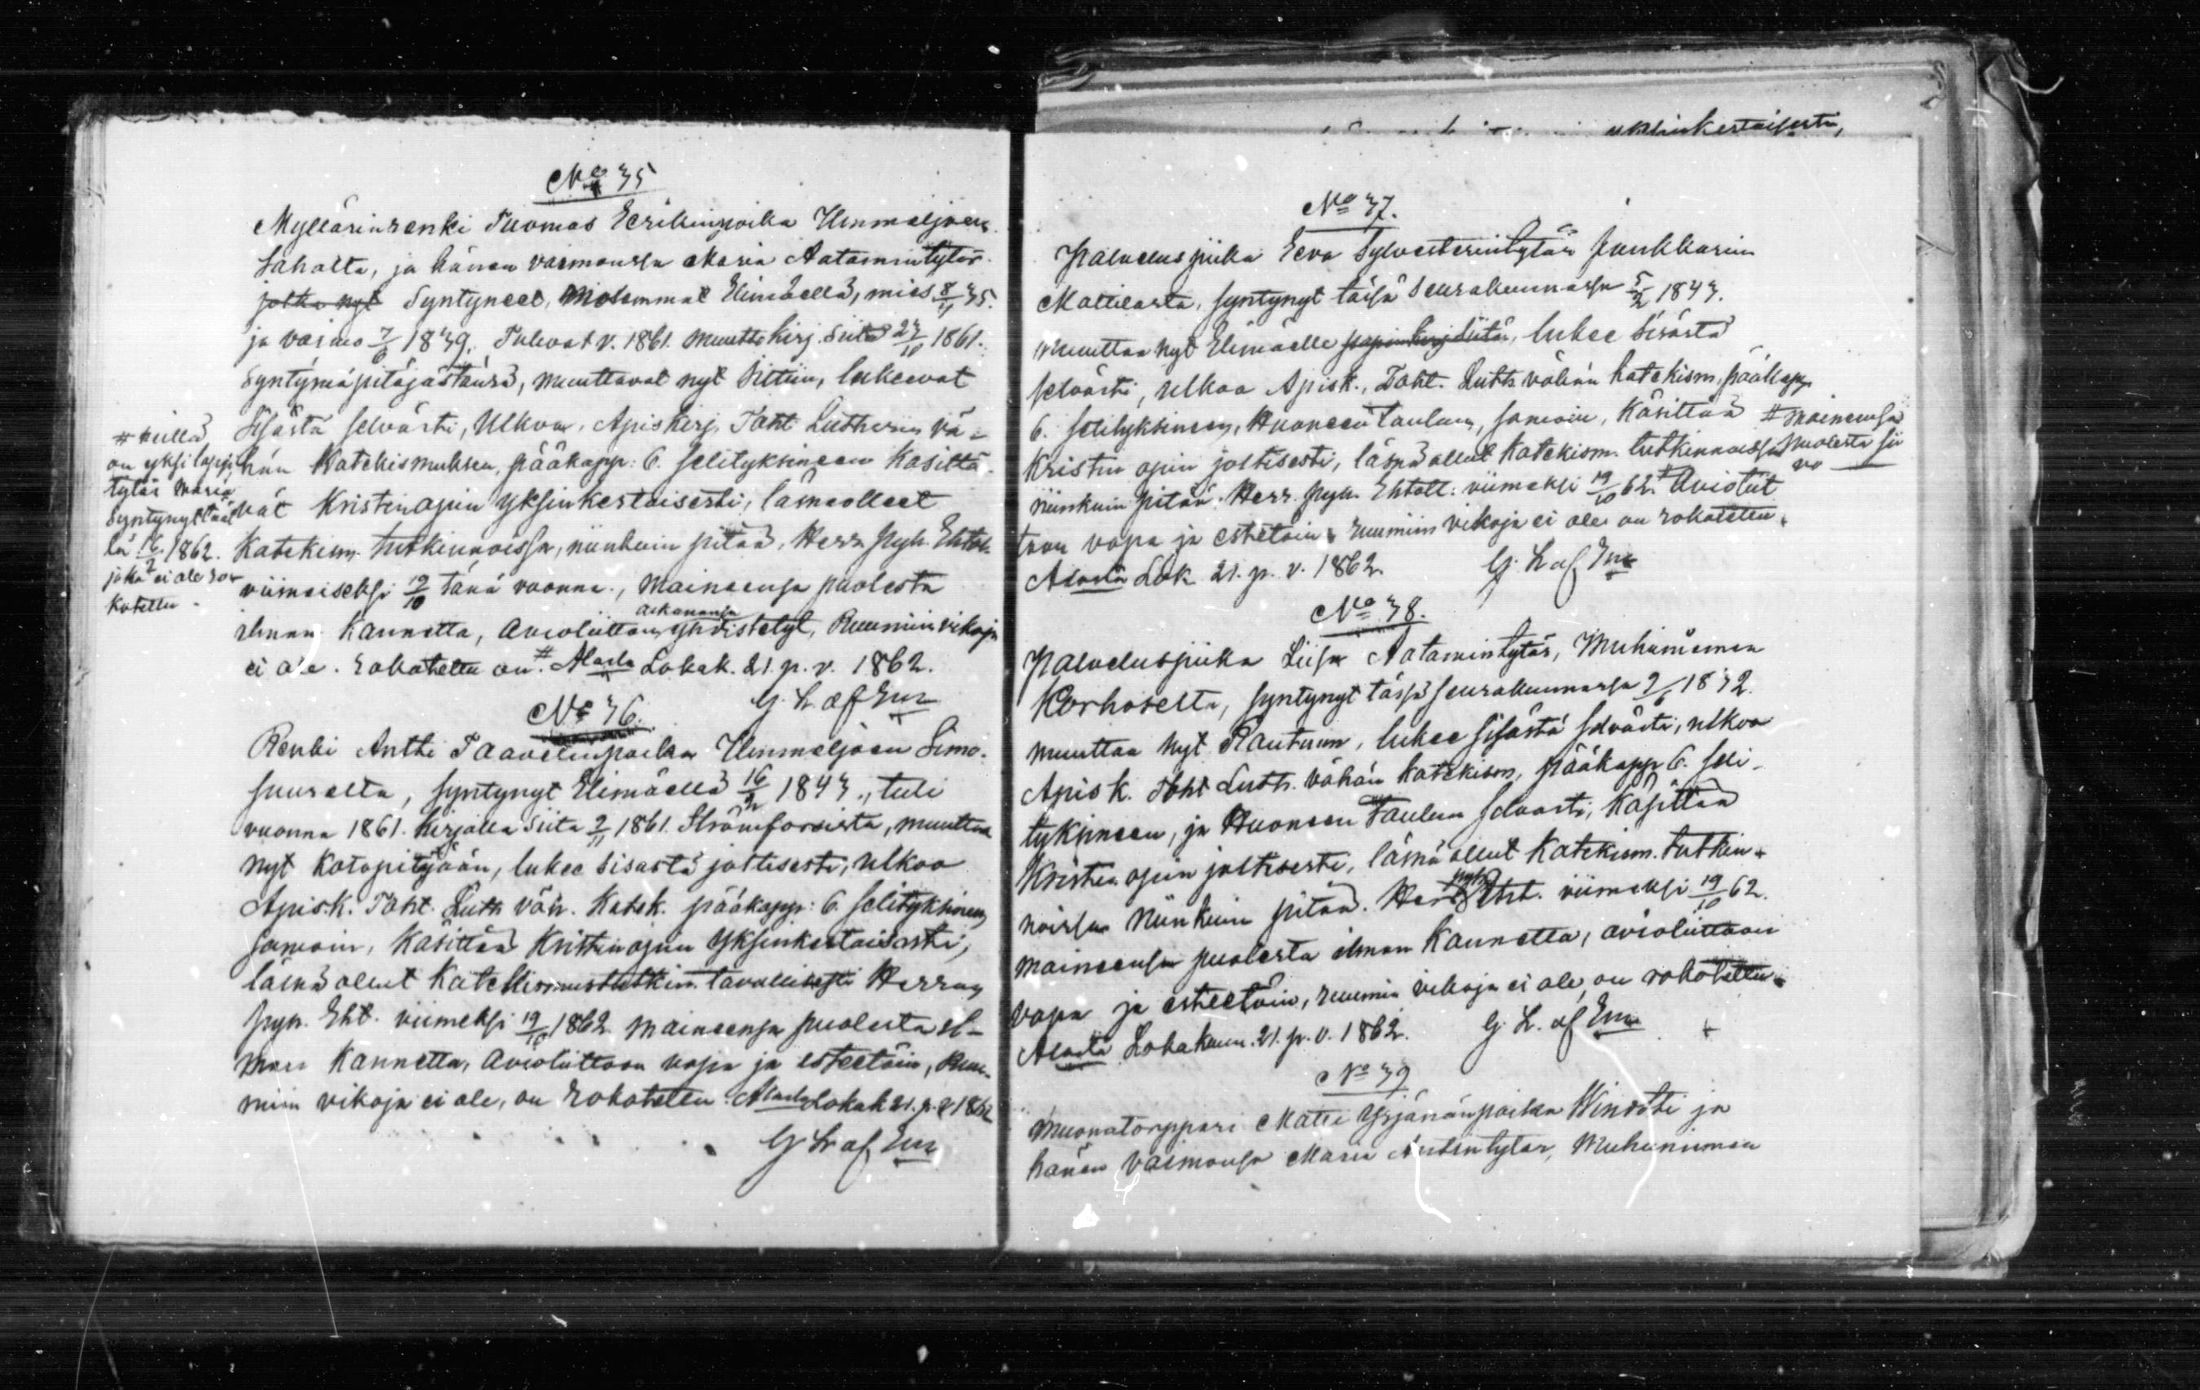 No 35
Myllärinrenki Tuomas Eerikinpoika Ummeljoen
Sahalta, ja hänen vaimonsa Maria Aatamintytär
jotka nyt Syntyneet, Molemmat Elimäellä, mies 8/11 35.
ja vaimo 7/6 1839. Tulevat v. 1861. muuttokirj. siitä 27/10 1861.
Syntymäpitäjästänsä, muuttavat nyt Sittiin, lukeevat
Sisästä selvästi, Ulkoa, Apiskirj. Toht Lutherin vä-
hän Katekismuksen, pääkapp: 6. selityksineen Käsittä-
vät Kristinopin Yksinkertaisesti, läsnäolleet
Katekism. tutkinnoissa, niinkuin pitää, Herr. pyh. Ehtol.
viimeiseksi 19/10 tänä vuonna., Maineensa puolesta
ilman Kannetta, Avioliittoon aikanansa yhdistetyt, Ruumiin vikoja
ei ole. rokotettu on. # Alasta Lokak. 21. p. v. 1862.
G. L. af Enr
# heillä
on yksi lapsi
tytär Maria
Syntynyt tääl
lä 16/7 1862.
joka ei ole ro-
kotettu.
No 36.
Renki Antti Taavetinpoika Ummeljoen Simo-
suurelta, syntynyt Elimäellä 16/2 1843., tuli
vuonna 1861. kirjalla siitä 2/11 1861. Strömforsista, muuttaa
nyt kotopitäjään, lukee sisästä jottisesti, ulkoa
Apis.k. Toht. Luth väh. Katek. pääkapp: 6. selityksineen
samoin, Käsittää Kristinopin Yksinkertaisesti,
läsnä ollut Katekismustutkin. tavallisesti Herran
pyh. Eht. viimeksi 19/10 1862. maineensa puolesta il-
man Kannetta, Avioliittoon vapa ja esteetöin, Ruu-
miin vikoja ei ole, on rokotettu. Alasta Lokak 21. p. v 1862
G. L. af Enr
yksinkertaisesti,
No 37.
Palveluspiika Eeva Sylvesterintytär Junkkarin
Mattilasta, syntynyt täisä Seurakunnassa 5/2 1843.
Muuttaa nyt Elimäelle papinkirj. siitä, lukee Sisästä
selvästi, ulkoa Apisk., Toht. Luth vähän katekism. pääkapp
6. selityksineen, Huoneen taulun, samoin, Käsittää
Kristin opin jottisesti, läsnä ollut Katekism. tutkinnoissa
niinkuin pitää. Herr. pyh. Ehtoll. viimeksi 19/10 62. # Aviotut
toon vapa ja esteetöin ruumiin vikoja ei ole on rokotettu.
Alasta Lok 21. p. v. 1862. G. L. af Enr
# maineensa
puolesta si
vo
No 38.
Palveluspiika Liisa Aatamintytär, Muhniemen
Korhoselta, syntynyt tässä seurakunnassa 9/6 1832.
muuttaa nyt Rautuun, lukee sisästä selvästi, ulkoa
Apis k. Toht Luth. vähän katekism, pääkapp 6. seli-
tyksineen, ja Huoneen Taulun selvästi, Käsittää
Kristin opin jottisesti, läsnä ollut Katekism. tutkin-
noissa niinkuin pitää. Herr. pyh. Eht. viimeksi 19/10 62.
maineensa puolesta ilman Kannetta, avioliittoon
vapa ja esteetöin, ruumin vikoja ei ole, on rokotettu.
Alasta Lokakuun. 21. p. v. 1862. G. L. af Enr
No 39
Muonatorppari Matti Yrjänänpoika Winsöti ja
hänen vaimonsa Maria Antintytär, Muhniemen